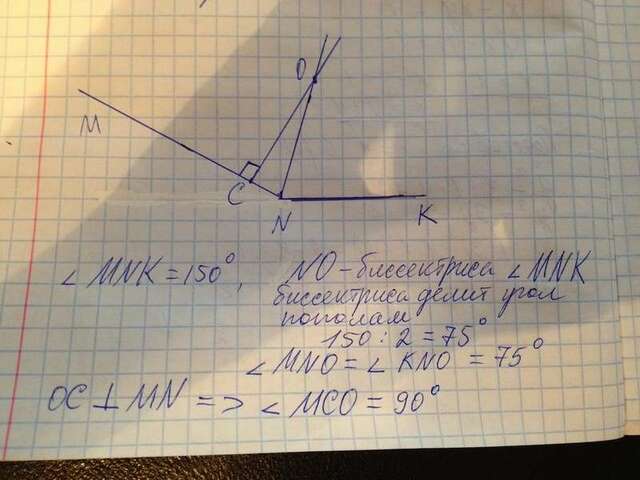 O
M
C
N
K
∠MNK = 150°, NO - биссектриса ∠MNK
биссектриса делит угол
пополам
150 : 2 = 75°
∠MNO = ∠KNO = 75°
OC ⊥ MN => ∠MCO = 90°